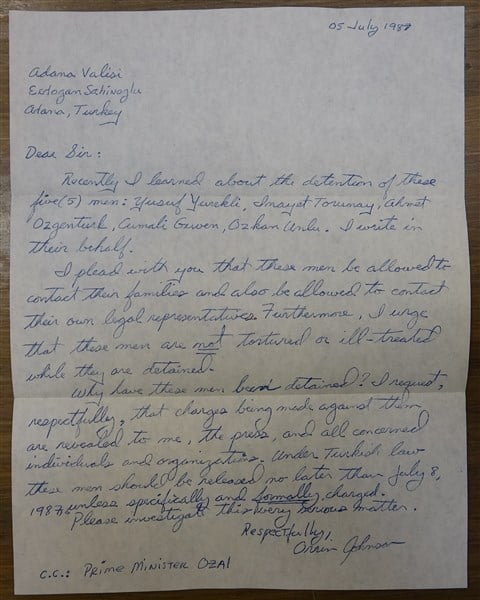 05 July 1987
Adana Valisi
Erdogan Sahinoglu
Adana, Turkey
Dear Sir:
Recently I learned about the detention of these
five (5) men: Yusuf Yurekli, Inayet Torunay, Ahmet
Ozgenturk, Cumali Guven, Ozkan Unlu. I write in
their behalf.
I plead with you that these men be allowed to
contact their families and also be allowed to contact
their own legal representatives. Furthermore, I urge
that these men are not tortured or ill-treated
while they are detained.
Why have these men been detained? I request,
respectfully, that charges being made against them
are revealed to me, the press, and all concerned
individuals and organizations. Under Turkish law
these men should be released no later than July 8,
1987, unless specifically and formally charged.
Please investigate this very serious matter.
Respectfully,
Orrin Johnson
C.C.: PRIME MINISTER OZAL